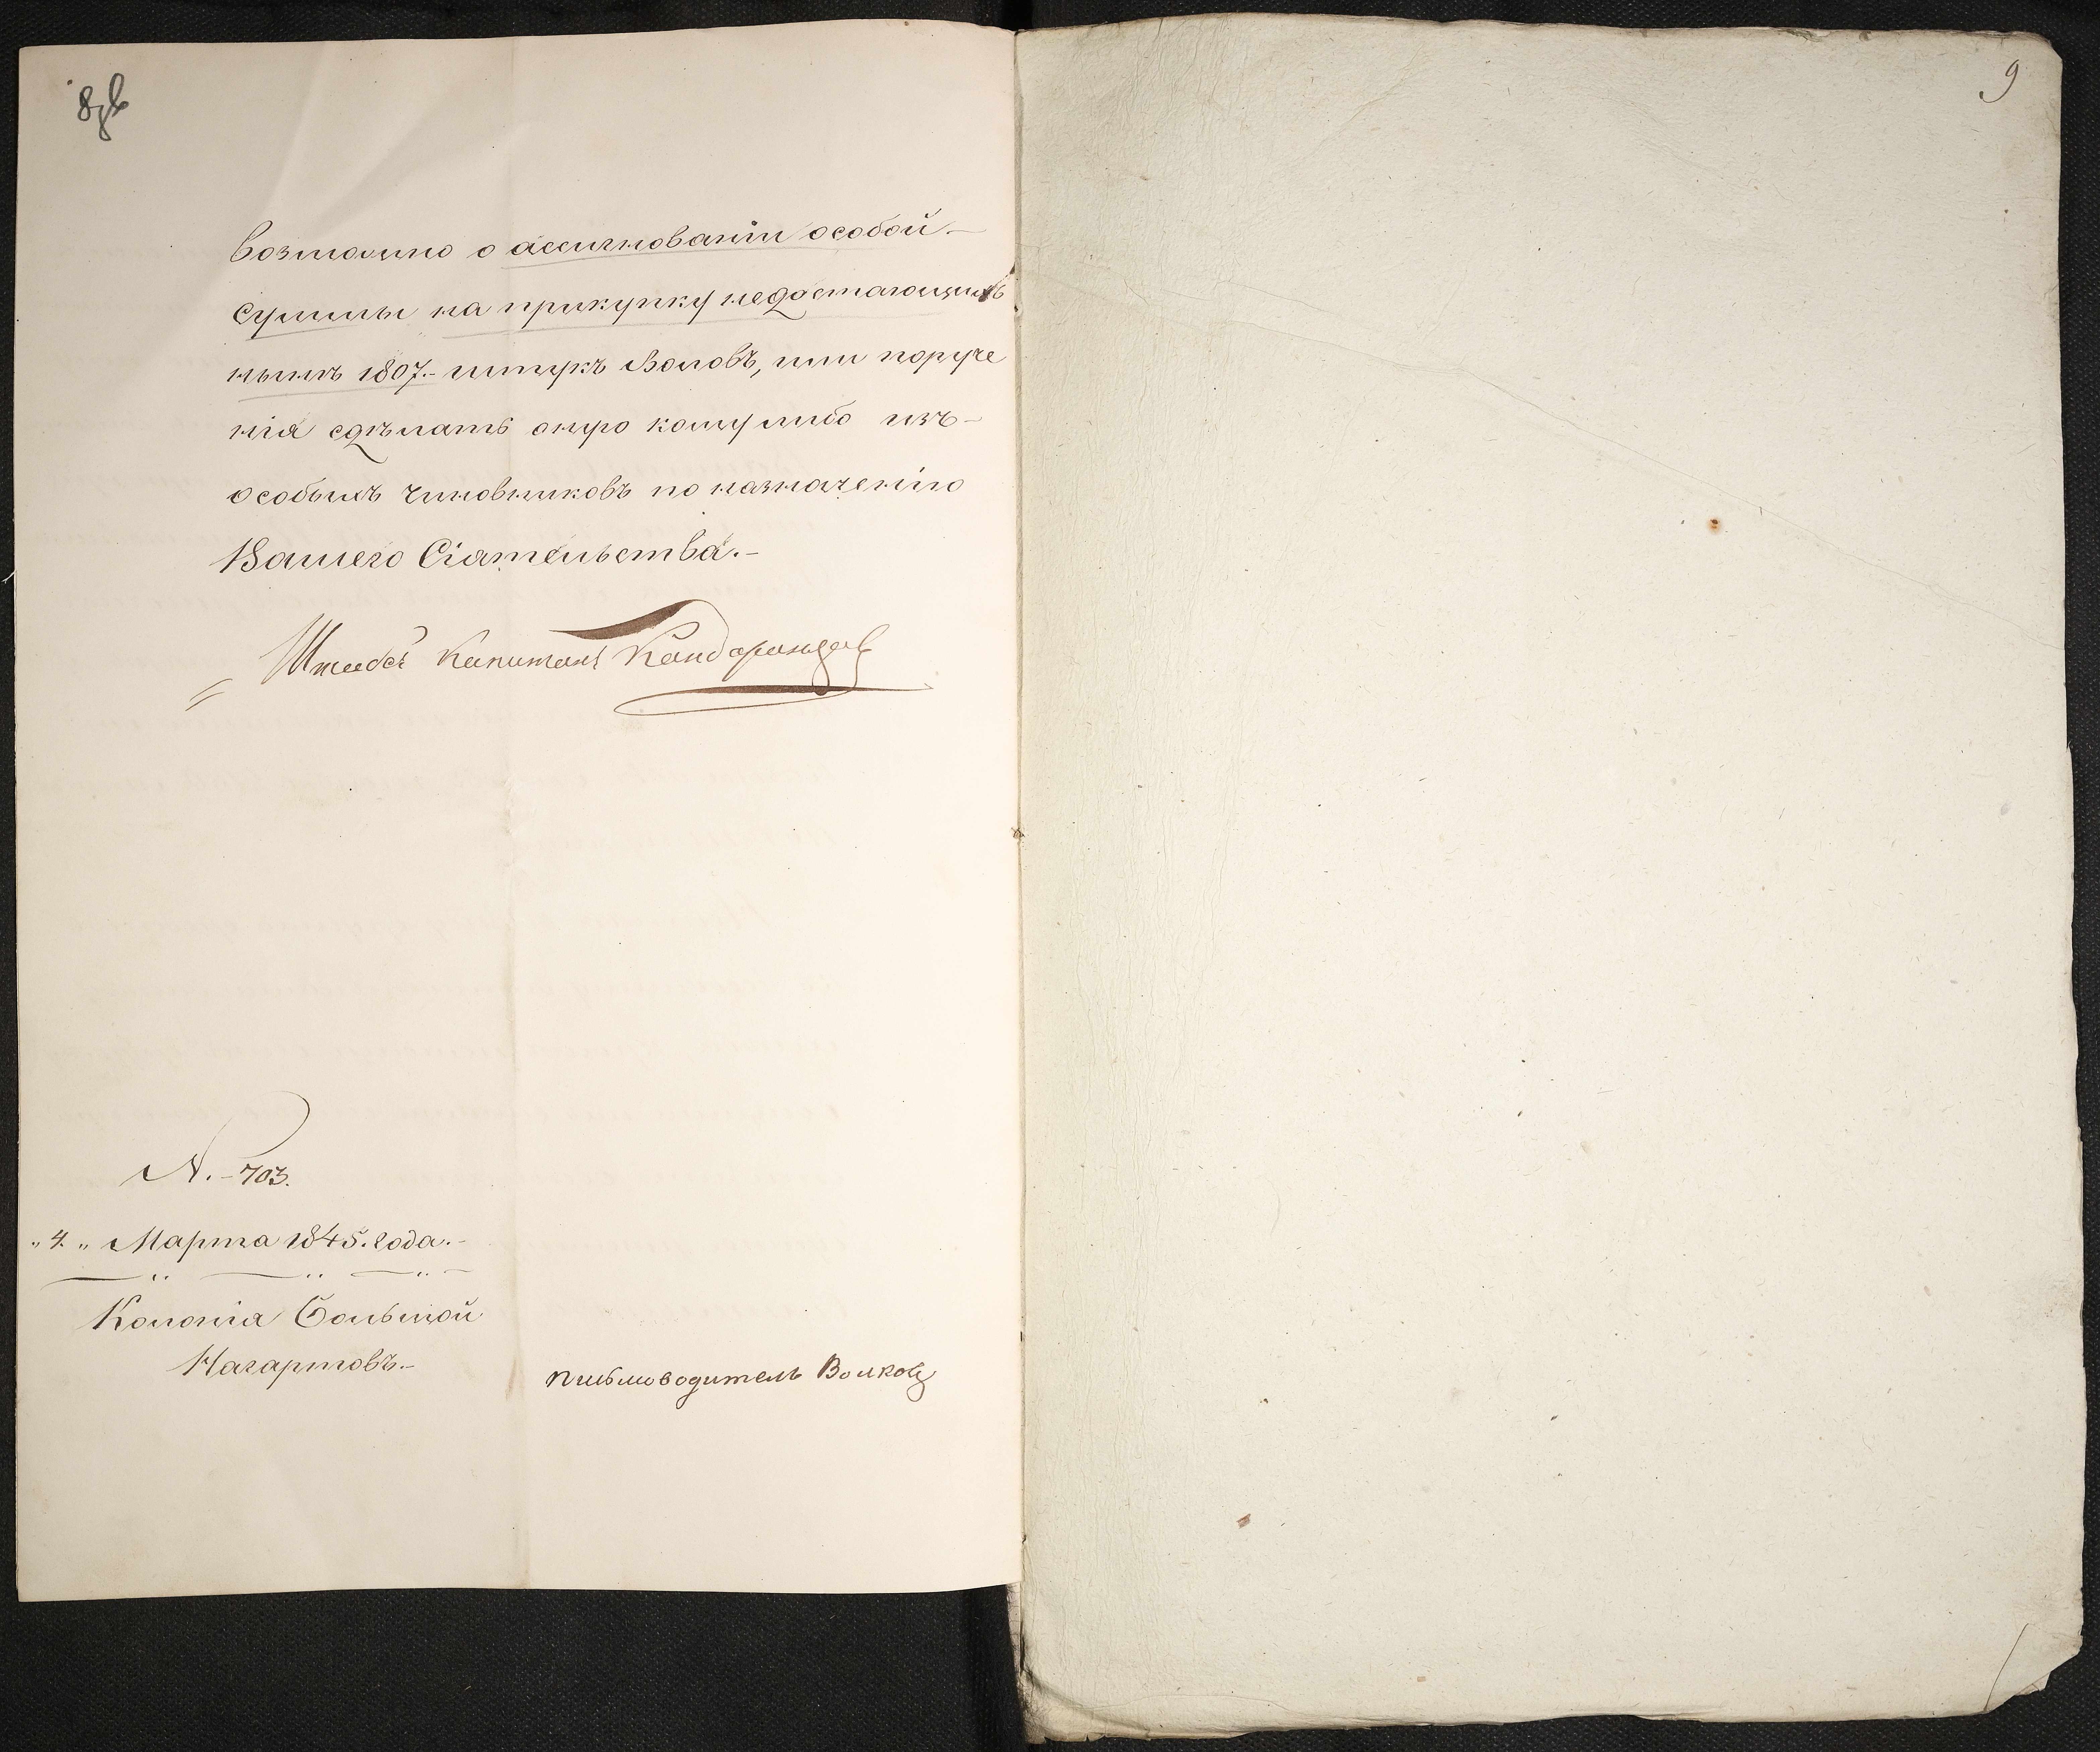 8 об
возможно о ассигновании особой
суммы на прикупку недостающихъ
нынѣ 1807.- штукъ Воловъ, или поруче
нія сдѣлать оную кому либо изъ-
особыхъ чиновниковъ по назначенію
Вашего Сіятельства.-
Штабсъ Капитанъ
N.-703.
„4.„ Марта 1845. года.-
Колонія Большой
Нагартовъ.-
письмоводитель Волковъ
9